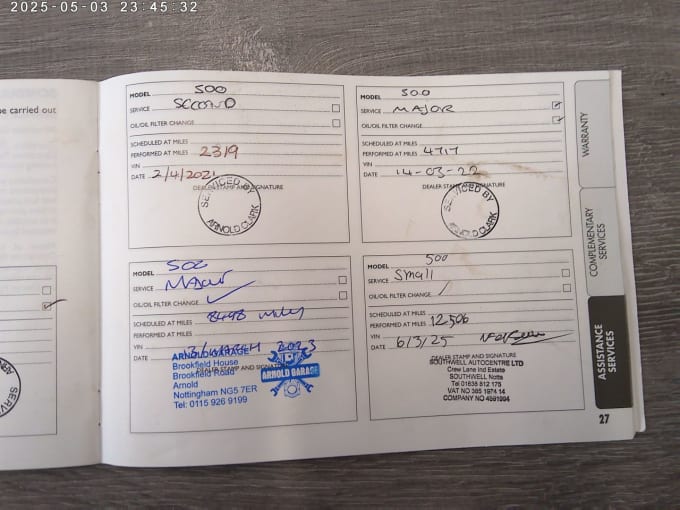 2025-05-03 23:45:32
be carried out
MODEL 500
SERVICE SECOND
OIL/OIL FILTER CHANGE
SCHEDULED AT MILES
PERFORMED AT MILES 2319
VIN
DATE 2/4/2021
DEALER STAMP AND SIGNATURE
SERVICED BY
ARNOLD CLARK
MODEL 500
SERVICE MAJOR
OIL/OIL FILTER CHANGE
SCHEDULED AT MILES
PERFORMED AT MILES 4717
VIN
DATE 14-03-22
DEALER STAMP AND SIGNATURE
SERVICED BY
ARNOLD CLARK
MODEL 500
SERVICE Major
OIL/OIL FILTER CHANGE
SCHEDULED AT MILES 8498 miles
PERFORMED AT MILES
VIN
DATE MARCH 2023
DEALER STAMP AND SIGNATURE
ARNOLD GARAGE
Brookfield House
Brookfield Road
Arnold
Nottingham NG5 7ER
Tel: 0115 926 9199
ARNOLD GARAGE
MODEL 500
SERVICE Small
OIL/OIL FILTER CHANGE
SCHEDULED AT MILES
PERFORMED AT MILES 12506
VIN
DATE 6/3/25
DEALER STAMP AND SIGNATURE
SOUTHWELL AUTOCENTRE LTD
Crew Lane Ind Estate
SOUTHWELL Notts
Tel 01636 812 175
VAT NO 385 1974 14
COMPANY NO 4591994
WARRANTY
COMPLEMENTARY
SERVICES
ASSISTANCE
SERVICES
27